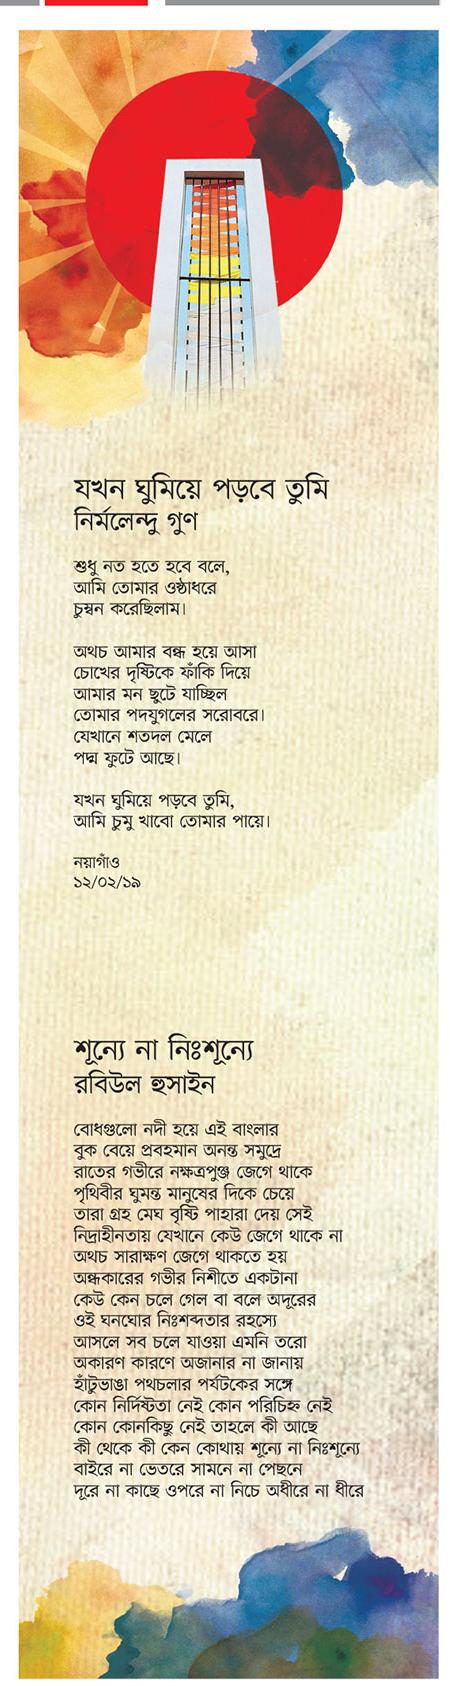 যখন ঘুমিয়ে পড়বে তুমি
নির্মলেন্দু গুণ
শুধু নত হতে হবে বলে,
আমি তোমার ওষ্ঠাধরে
চুম্বন করেছিলাম।
অথচ আমার বন্ধ হয়ে আসা
চোখের দৃষ্টিকে ফাঁকি দিয়ে
আমার মন ছুটে যাচ্ছিল
তোমার পদযুগলের সরোবরে।
যেখানে শতদল মেলে
পদ্ম ফুটে আছে।
যখন ঘুমিয়ে পড়বে তুমি,
আমি চুমু খাবো তোমার পায়ে।
নয়াগাঁও
১২/০২/১৯
শূন্যে না নিঃশূন্যে
রবিউল হুসাইন
বোধগুলো নদী হয়ে এই বাংলার
বুক বেয়ে প্রবহমান অনন্ত সমুদ্রে
রাতের গভীরে নক্ষত্রপুঞ্জ জেগে থাকে
পৃথিবীর ঘুমন্ত মানুষের দিকে চেয়ে
তারা গ্রহ মেঘ বৃষ্টি পাহারা দেয় সেই
নিদ্রাহীনতায় যেখানে কেউ জেগে থাকে না
অথচ সারাক্ষণ জেগে থাকতে হয়
অন্ধকারের গভীর নিশীতে একটানা
কেউ কেন চলে গেল বা বলে অদূরের
ওই ঘনঘোর নিঃশব্দতার রহস্যে
আসলে সব চলে যাওয়া এমনি তরো
অকারণ কারণে অজানার না জানায়
হাঁটুভাঙা পথচলার পর্যটকের সঙ্গে
কোন নির্দিষ্টতা নেই কোন পরিচিহ্ন নেই
কোন কোনকিছু নেই তাহলে কী আছে
কী থেকে কী কেন কোথায় শূন্যে না নিঃশূন্যে
বাইরে না ভেতরে সামনে না পেছনে
দূরে না কাছে ওপরে না নিচে অধীরে না ধীরে